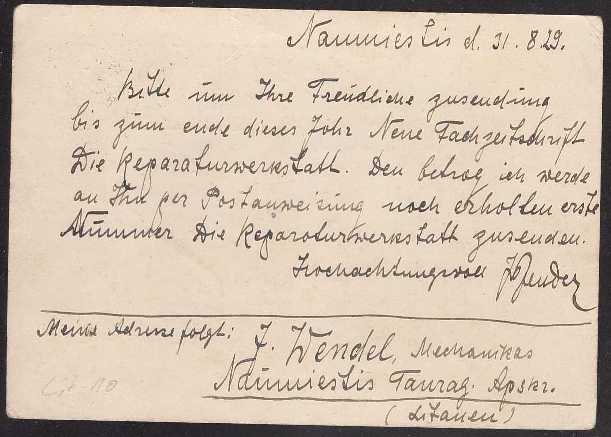 Naumiestis d. 31. 8.29.
Bitte um Ihre Freudliche zusendung
bis zum ende dieses Johr Neue Fachzeitschrift
Die Reparaturwerkstatt. Den betrog ich werde
an Ihn per Postanweisung noch erholten erste
Nummer Die Reparoturwerkstatt zusenden.
Hochachtungsvoll JWendel
Meine Adresse folgt: J. Wendel, Mechanikas
Naumiestis Taurag. Apskr.
(Litauen)
Lit-110